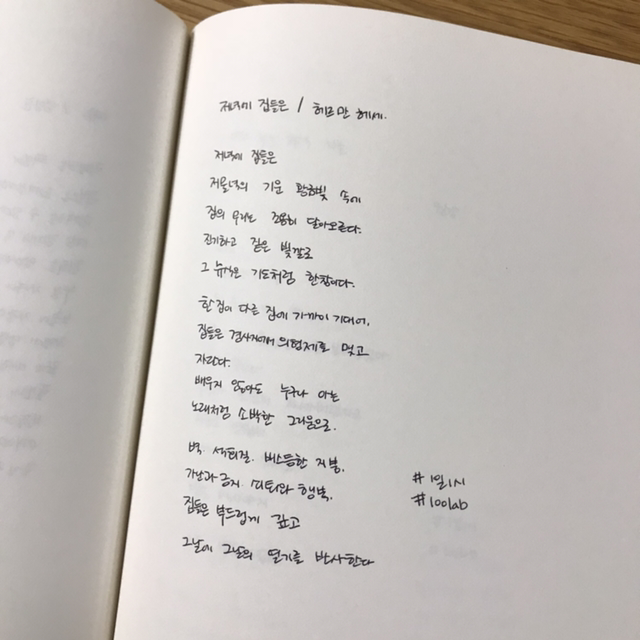 저녁에 집들은 / 헤르만 헤세.
저녁에 집들은
저물녘의 기운 황금빛 속에
집의 무리는 조용히 달아오른다.
진기하고 짙은 빛깔로
그 휴식은 기도처럼 한창이다.
한 집이 다른 집에 가까이 기대어,
집들은 경사지에서 의형제를 맺고
자란다.
배우지 않아도 누구나 아는
노래처럼 소박한 그리움으로.
벽. 석회칠. 비스듬한 지붕,
가난과 긍지. 쇠퇴와 행복,
집들은 부드럽게 깊고
그날에 그날의 열기를 반사한다
#1일1시
#100lab